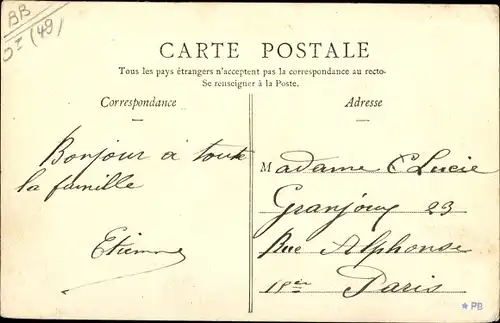 BB
OI (49)
CARTE POSTALE
Tous les pays étrangers n'acceptent pas la correspondance au recto-
Se renseigner à la Poste.
Correspondance
Adresse
Bonjour a toute
la famille
Etienne
Madame E Lucie
Granjoux 23
Rue Alphonse
15er Paris
★PB